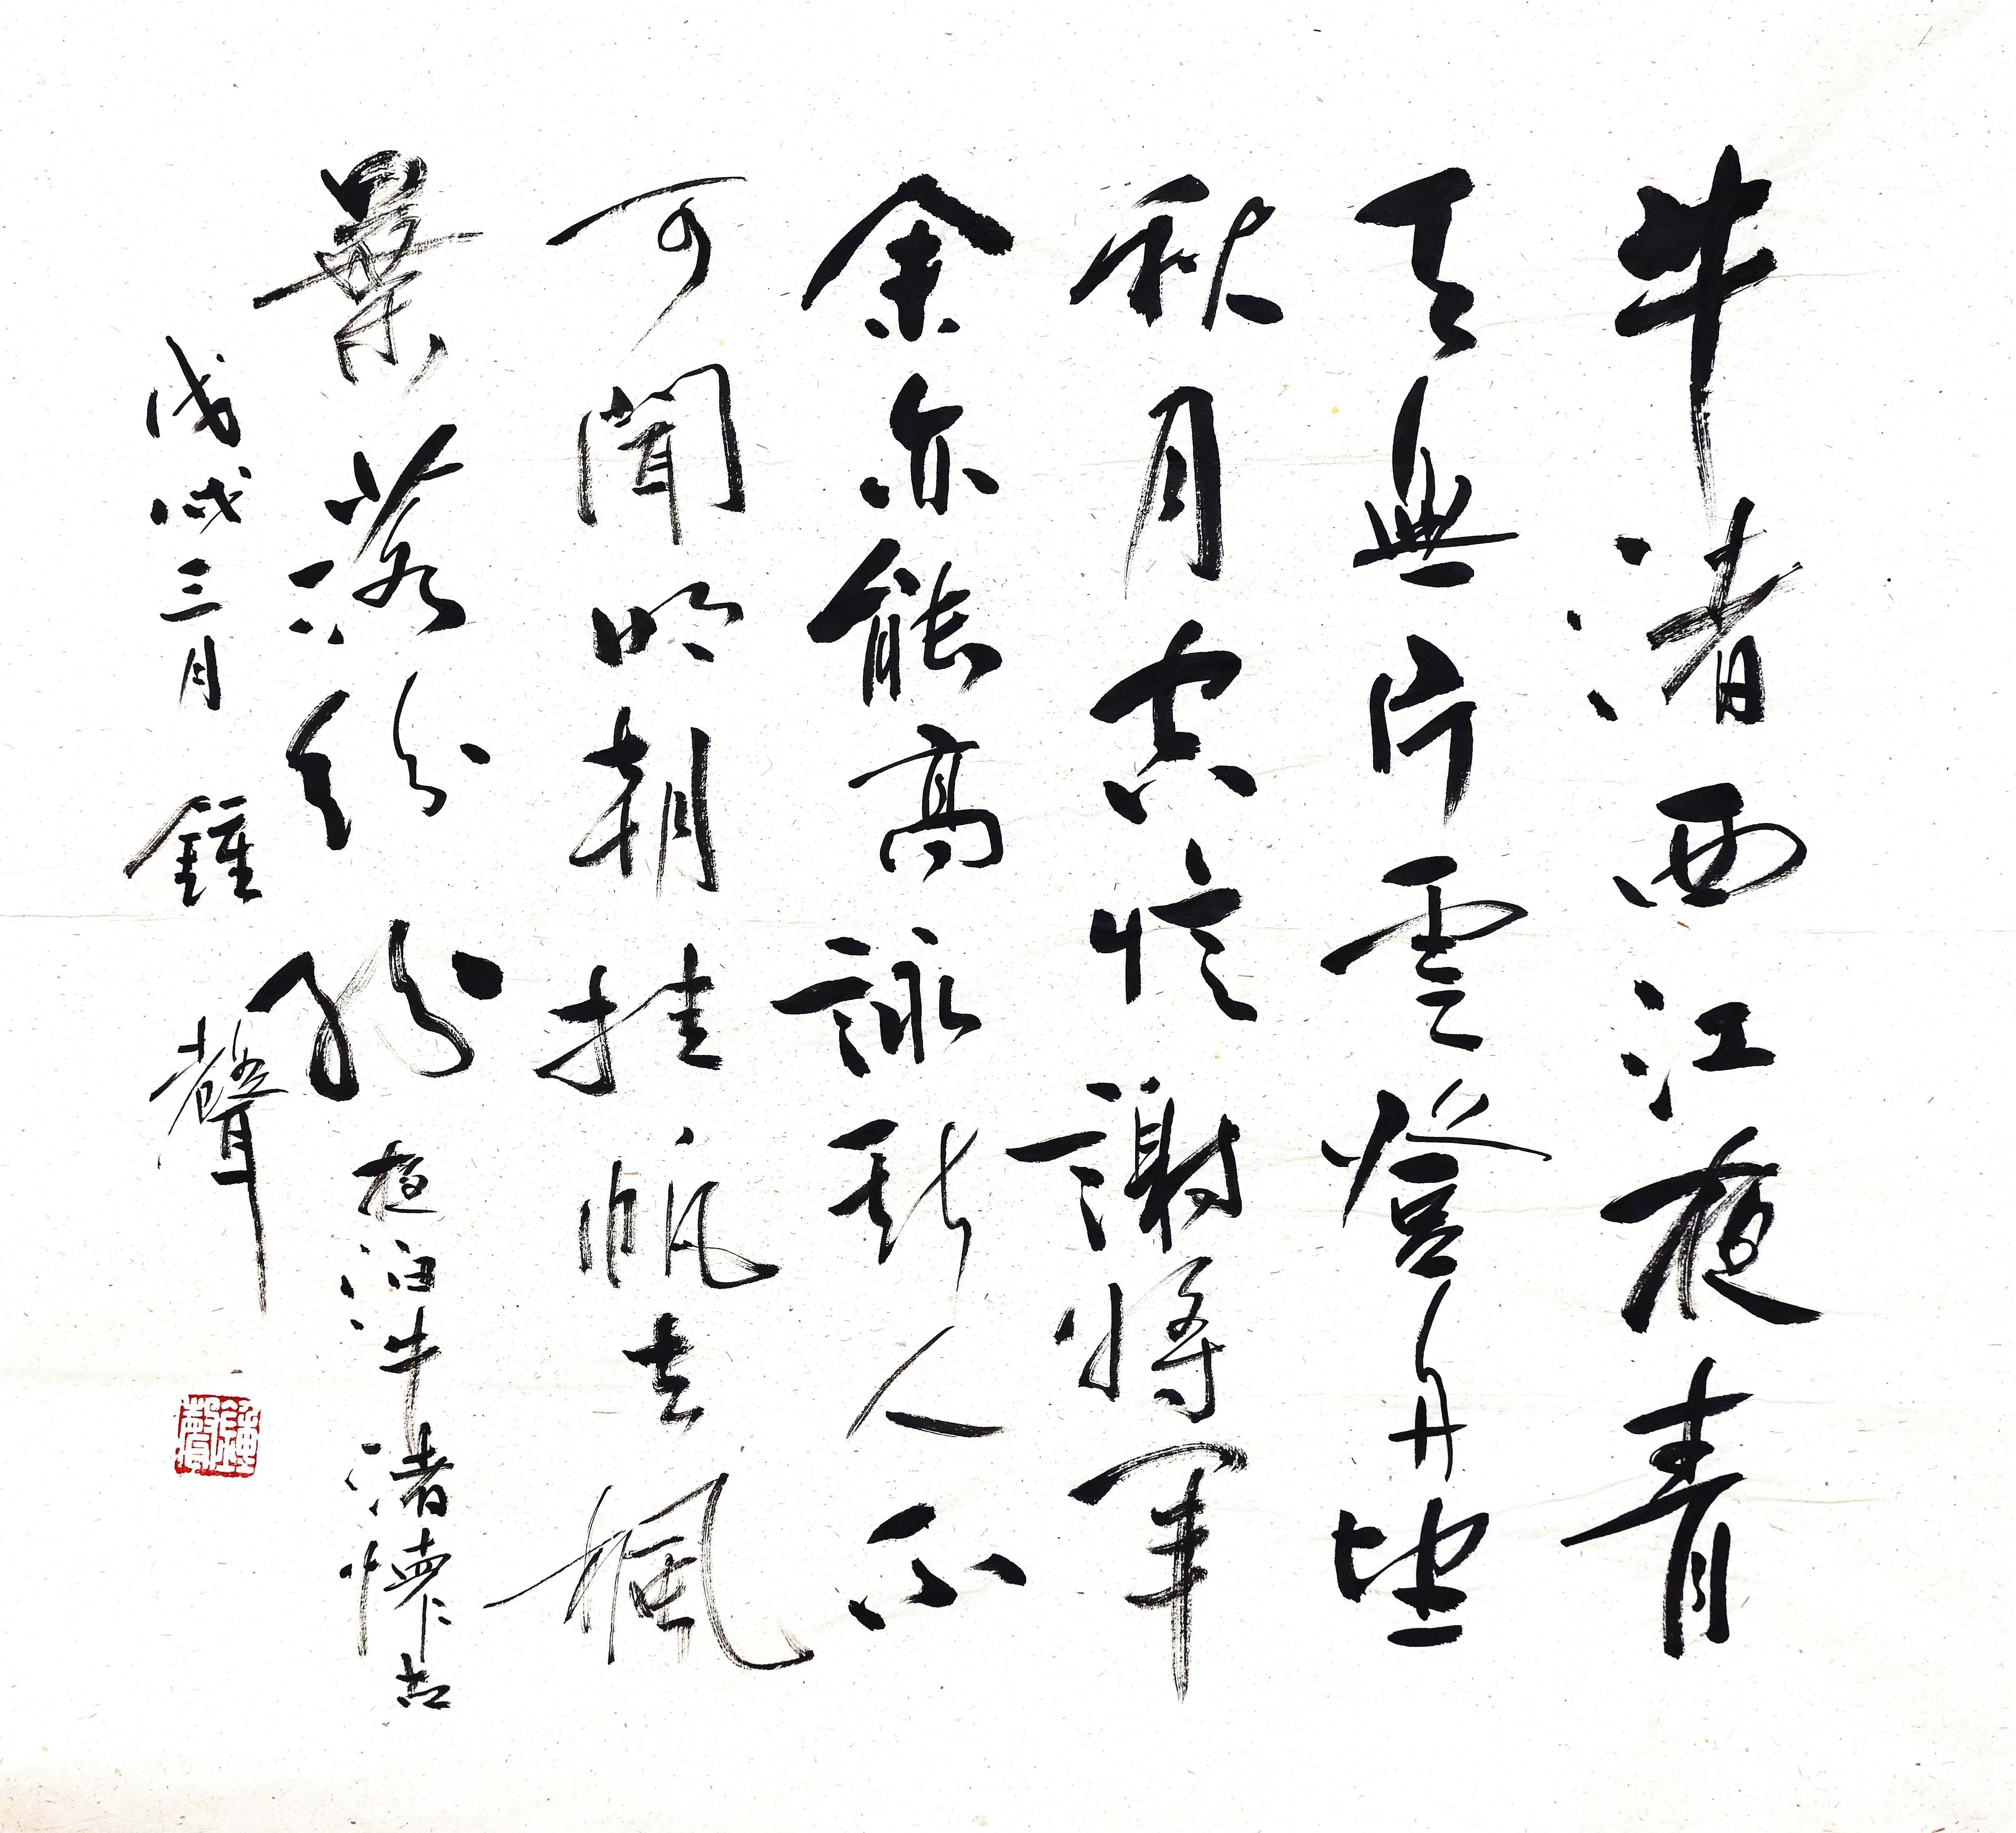 牛渚西江夜青
天無片雲登舟望
秋月空憶謝將軍
余亦能高詠斯人不
可聞明朝挂帆去楓
葉落紛紛 夜泊牛渚懷古
戊戌三月 鍾聲
鍾聲